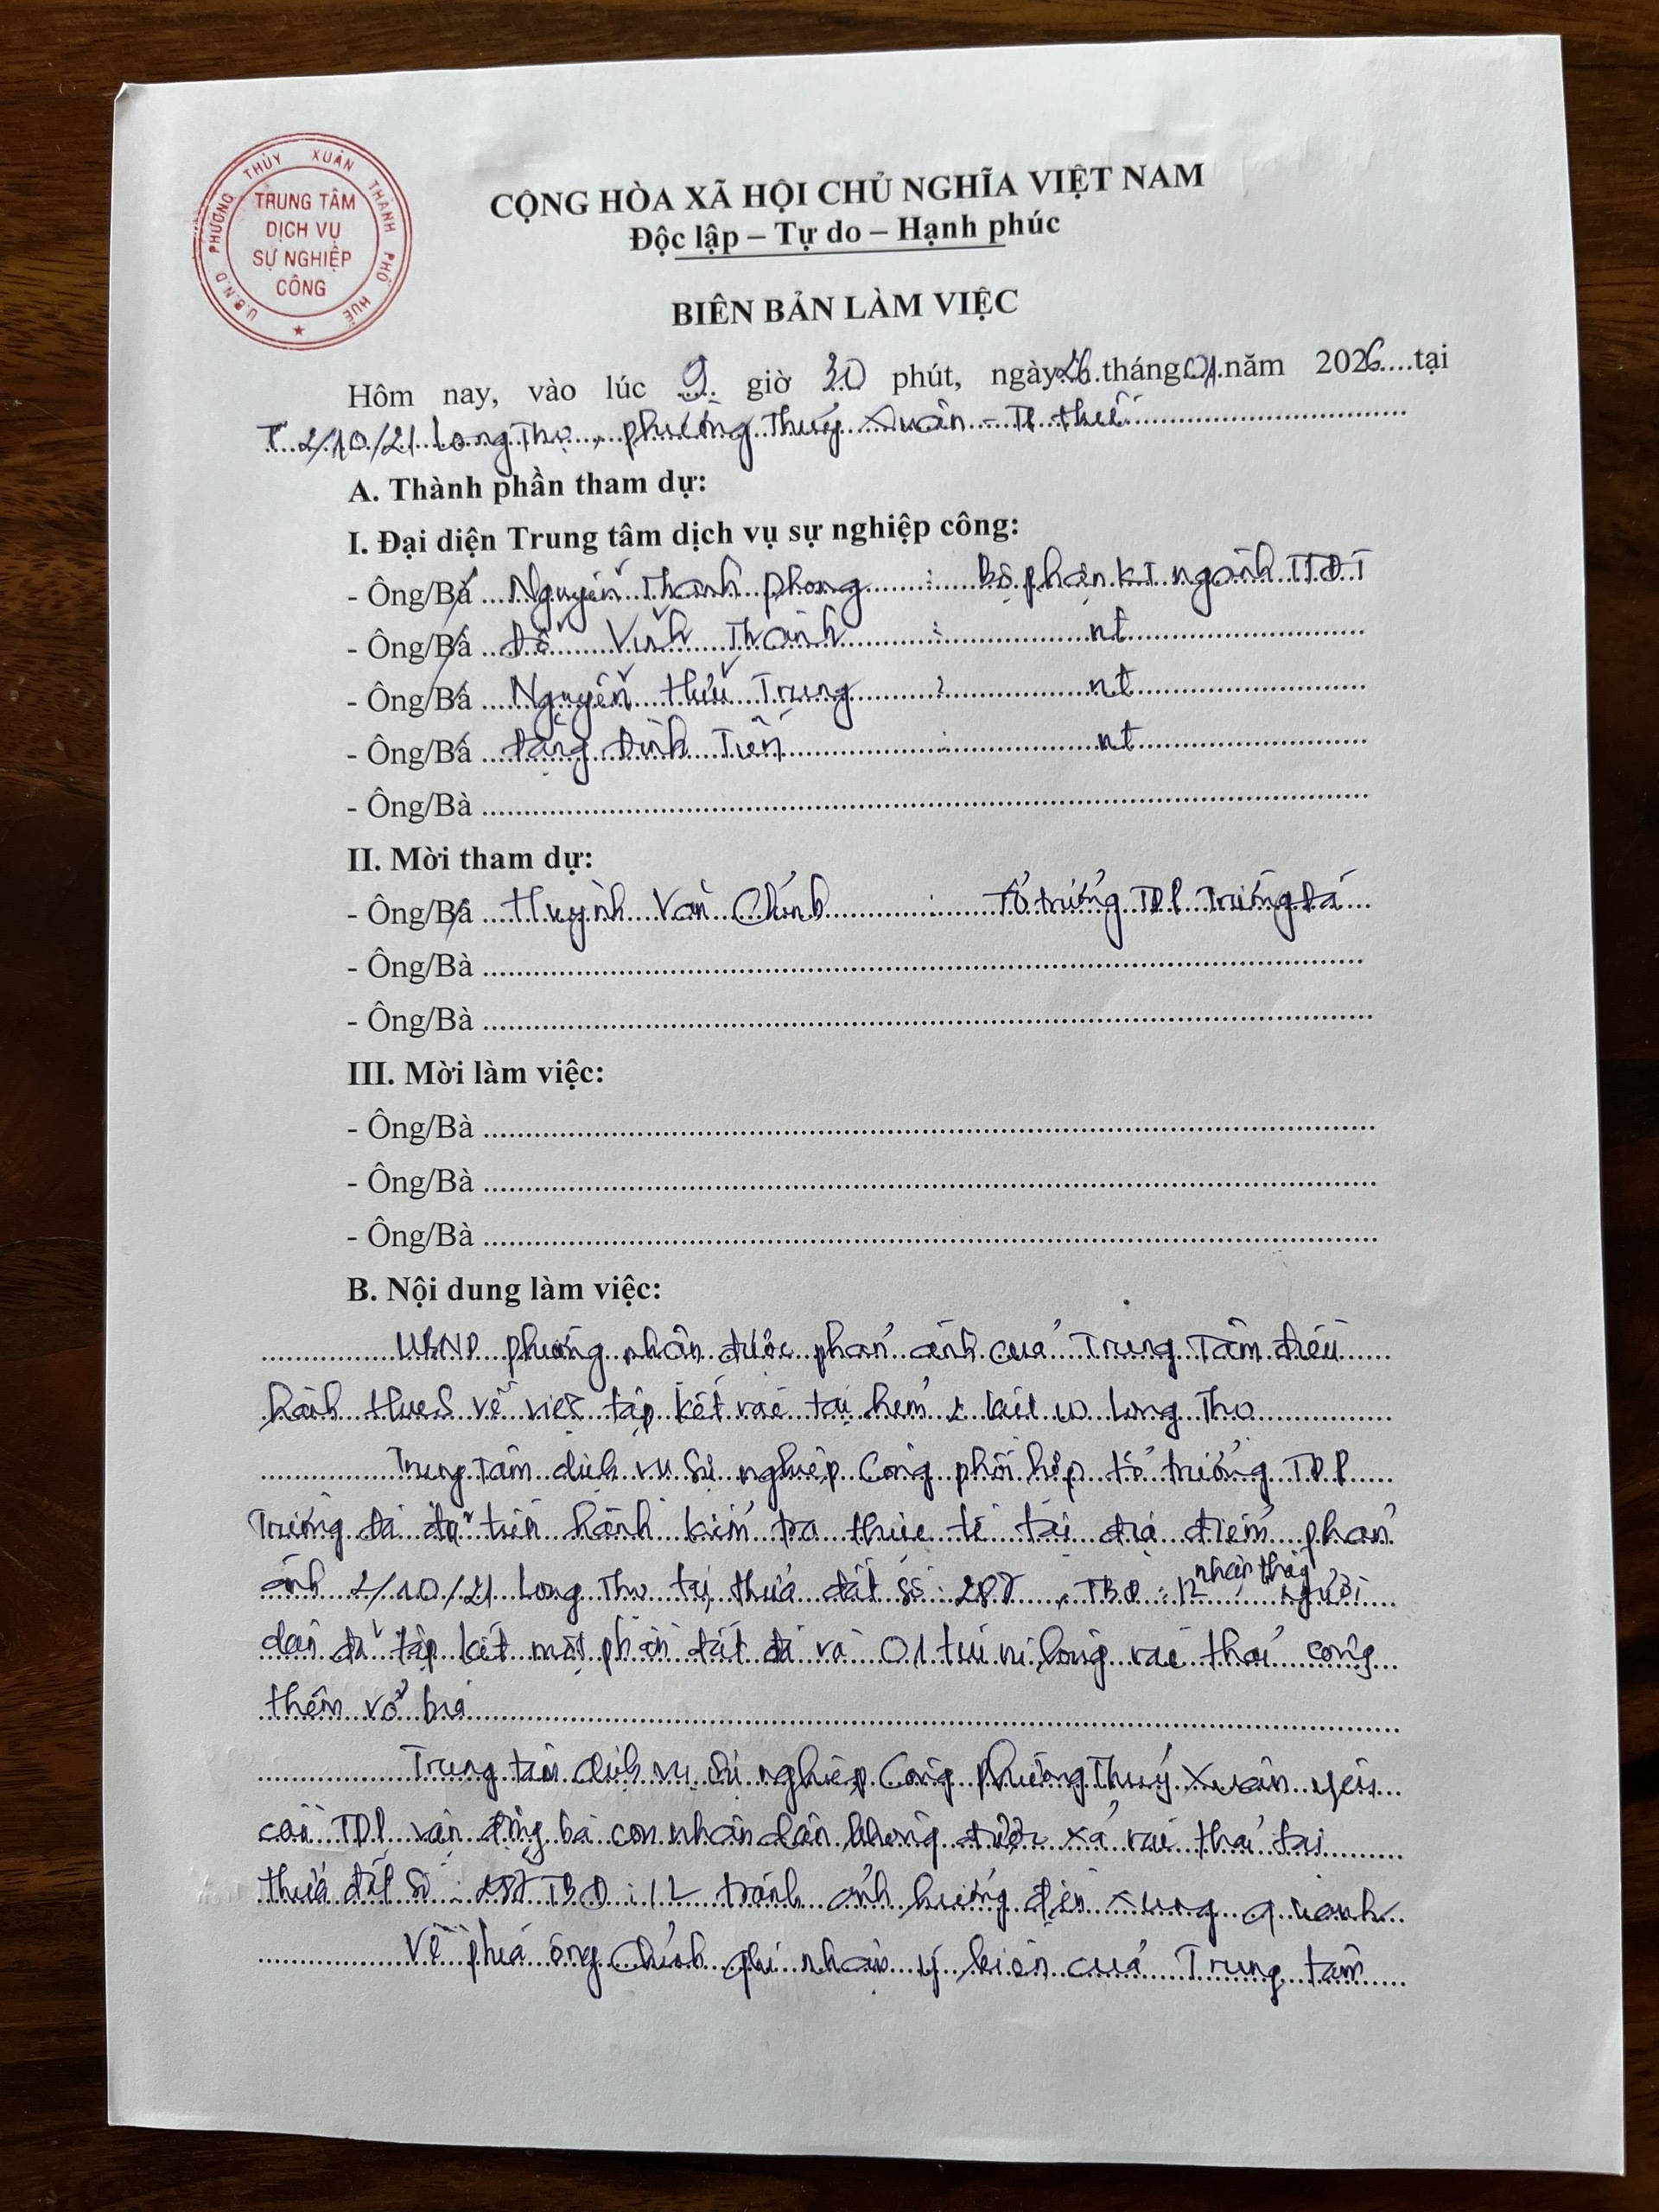 U.B.N.D PHƯỜNG THỦY XUÂN THÀNH PHỐ HUẾ
TRUNG TÂM
DỊCH VỤ
SỰ NGHIỆP
CÔNG
CỘNG HÒA XÃ HỘI CHỦ NGHĨA VIỆT NAM
Độc lập – Tự do – Hạnh phúc
BIÊN BẢN LÀM VIỆC
Hôm nay, vào lúc 9 giờ 30 phút, ngày 26 tháng 01 năm 2026 tại
2/10/21 Long Thọ, phường Thủy Xuân - TP Huế
A. Thành phần tham dự:
I. Đại diện Trung tâm dịch vụ sự nghiệp công:
- Ông/Bà Nguyễn Thanh Phong : Bộ phận KT ngành TTĐT
- Ông/Bà Đỗ Vĩnh Thành : nt
- Ông/Bà Nguyễn Hữu Trung : nt
- Ông/Bà Đặng Đình Tiến : nt
- Ông/Bà
II. Mời tham dự:
- Ông/Bà Huỳnh Văn Chính : Tổ trưởng TDP Trường Đá
- Ông/Bà
- Ông/Bà
III. Mời làm việc:
- Ông/Bà
- Ông/Bà
- Ông/Bà
B. Nội dung làm việc:
UBND phường nhận được phản ánh của Trung Tâm điều
hành HueS về việc tập kết rác tại hẻm 2 kiệt 10 Long Thọ
Trung Tâm dịch vụ Sự nghiệp Công phối hợp tổ trưởng TDP
Trường Đá đã tiến hành kiểm tra thực tế tại địa điểm phản
ánh 2/10/21 Long Thọ tại thửa đất số: 287, TBĐ: 12 nhận thấy người
dân đã tập kết một phần đất đá và 01 túi ni lông rác thải cộng
thêm vỏ bia
Trung tâm dịch vụ sự nghiệp Công phường Thủy Xuân yêu
cầu TDP vận động bà con nhân dân không được xả rác thải tại
thửa đất số: 287 TBĐ: 12 tránh ảnh hưởng đến xung quanh
Về phía ông Chính ghi nhận ý kiến của Trung tâm